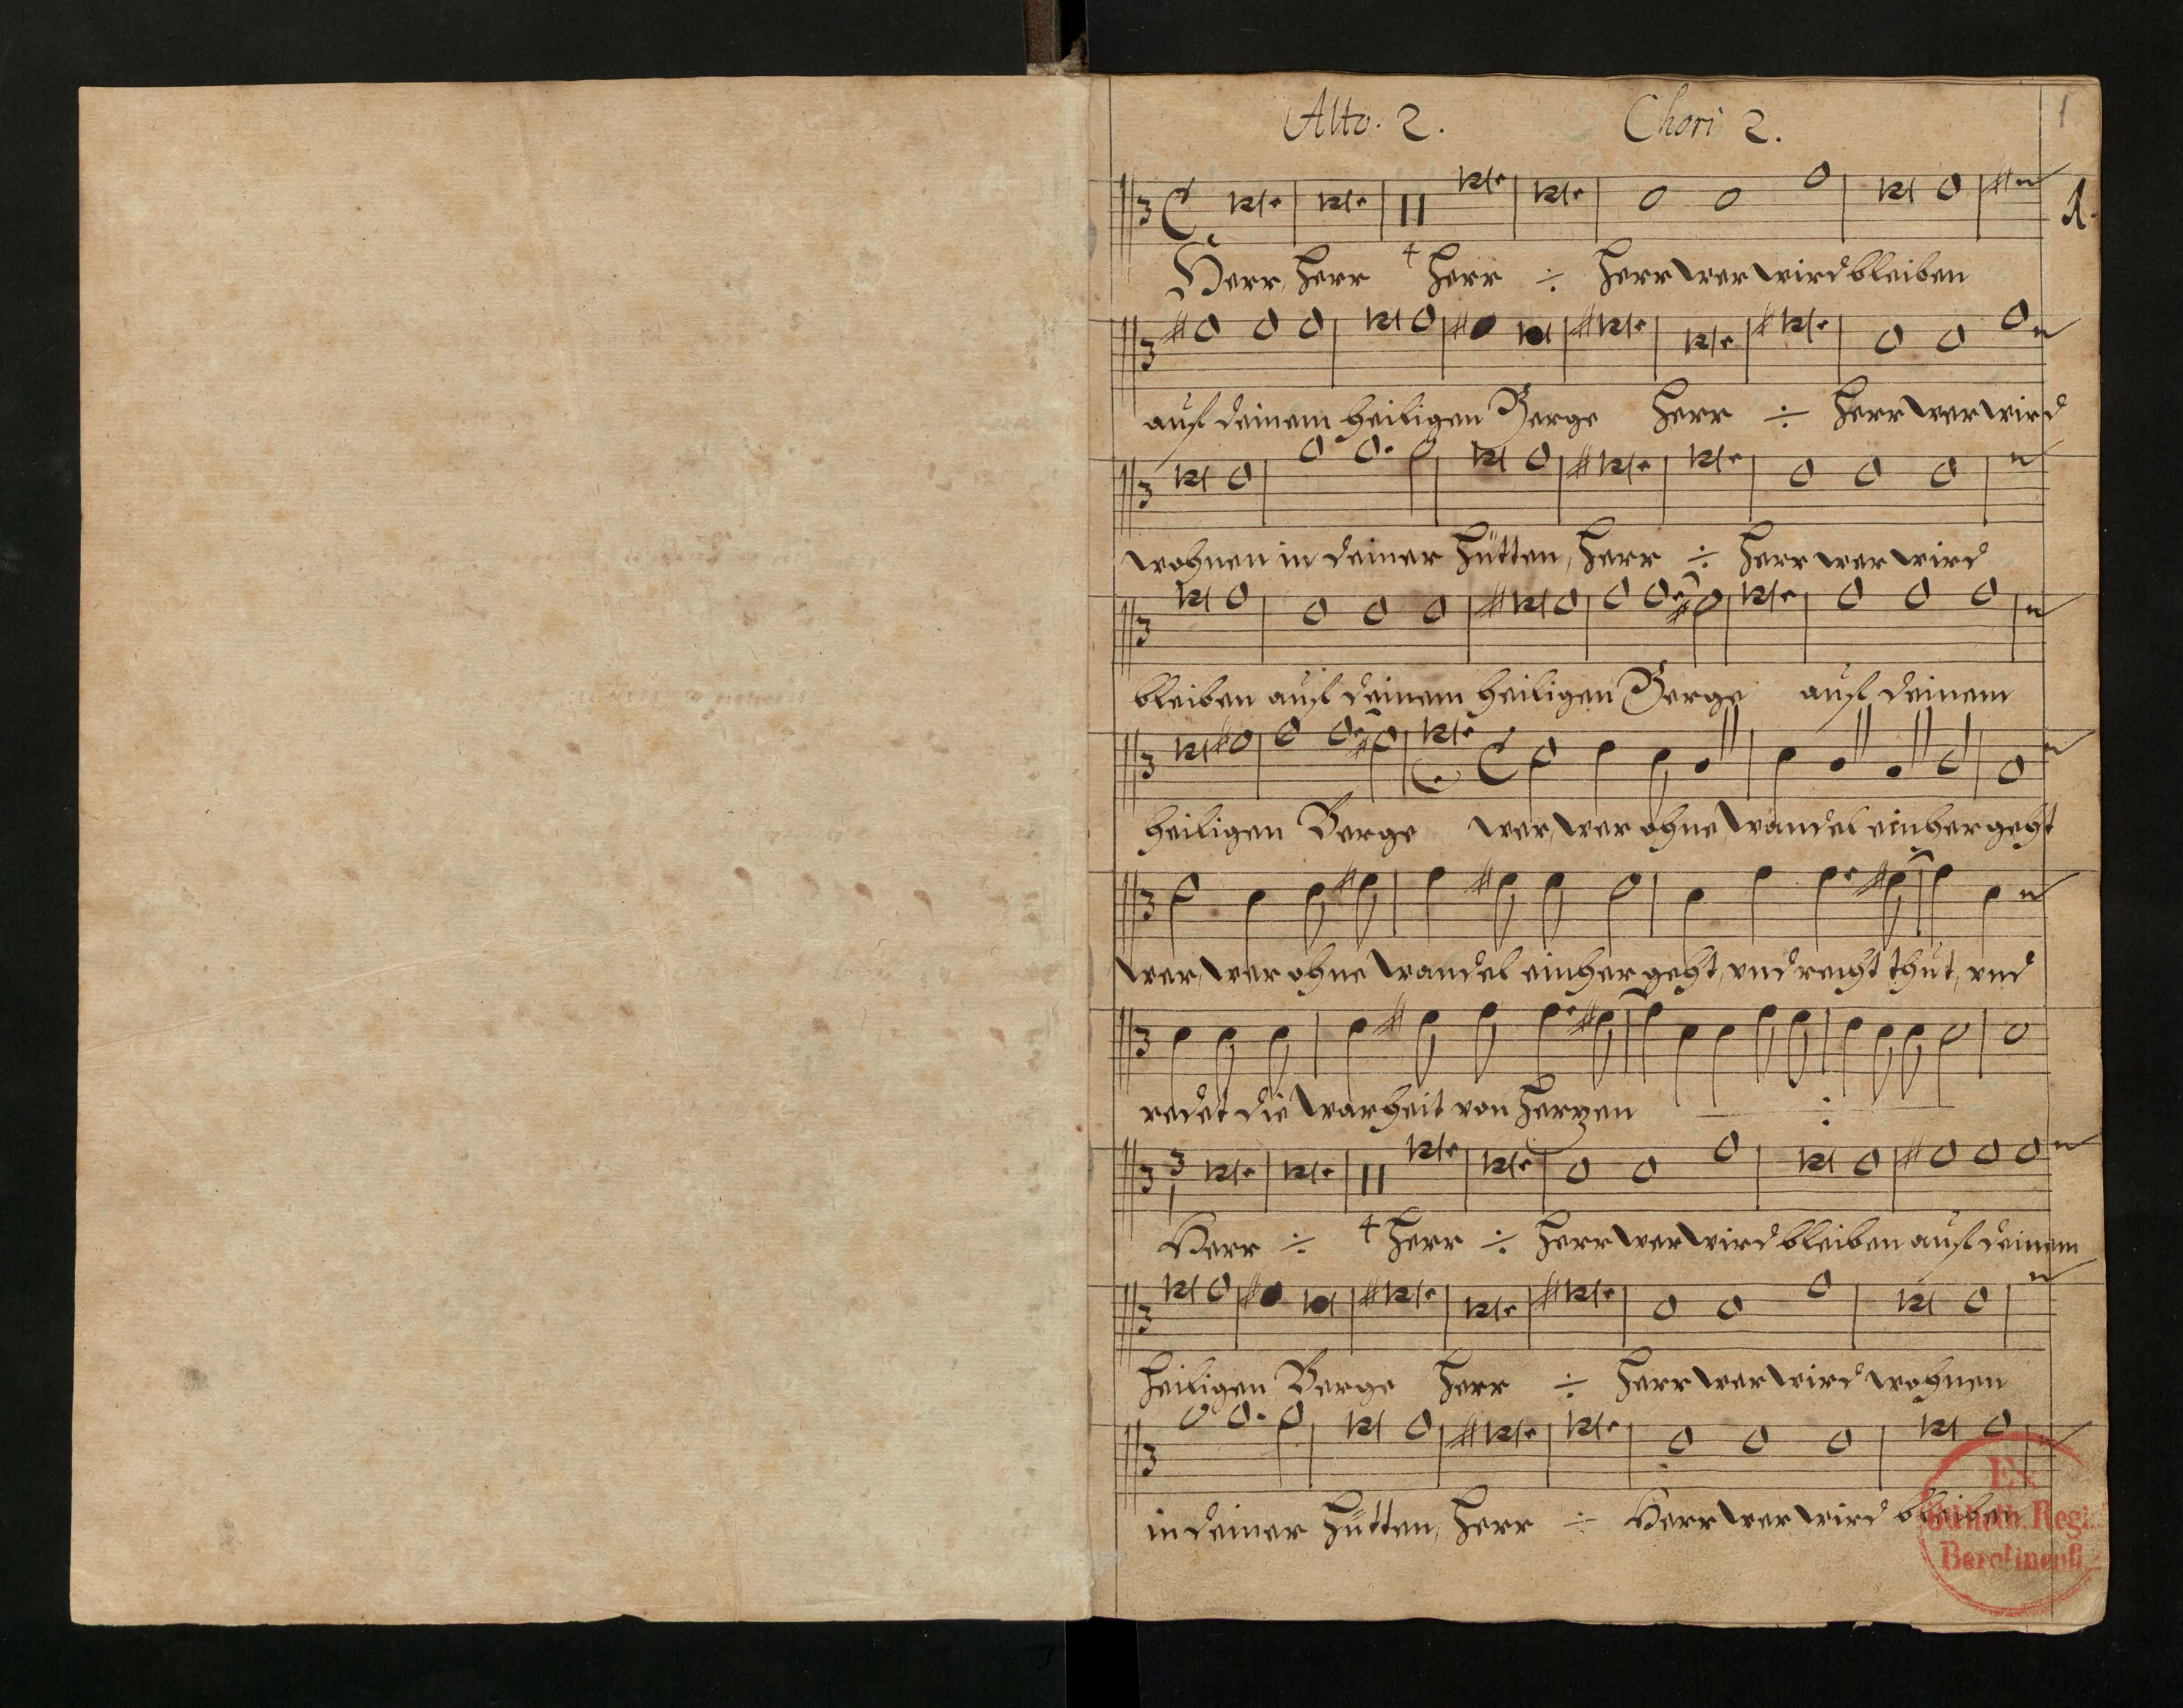 Alto. 2. Chori 2.
1
1.
Herr, Herr 4 Herr ÷ Herr wer wird bleiben
auf deinem heiligen Berge Herr ÷ Herr wer wird
wohnen in deiner Hütten, Herr ÷ Herr wer wird
bleiben auf deinem heiligen Berge auf deinem
heiligen Berge wer, wer ohne wandel einher geht
wer, wer ohne wandel einher geht, vnd recht thut, vnd
redet die warheit von Hertzen ÷
Herr ÷ 4 Herr ÷ Herr wer wird bleiben auf deinem
heiligen Berge Herr ÷ Herr wer wird wohnen
in deiner Hütten, Herr ÷ Herr wer wird bleiben
Ex
Biblioth. Regia
Berolinensi.